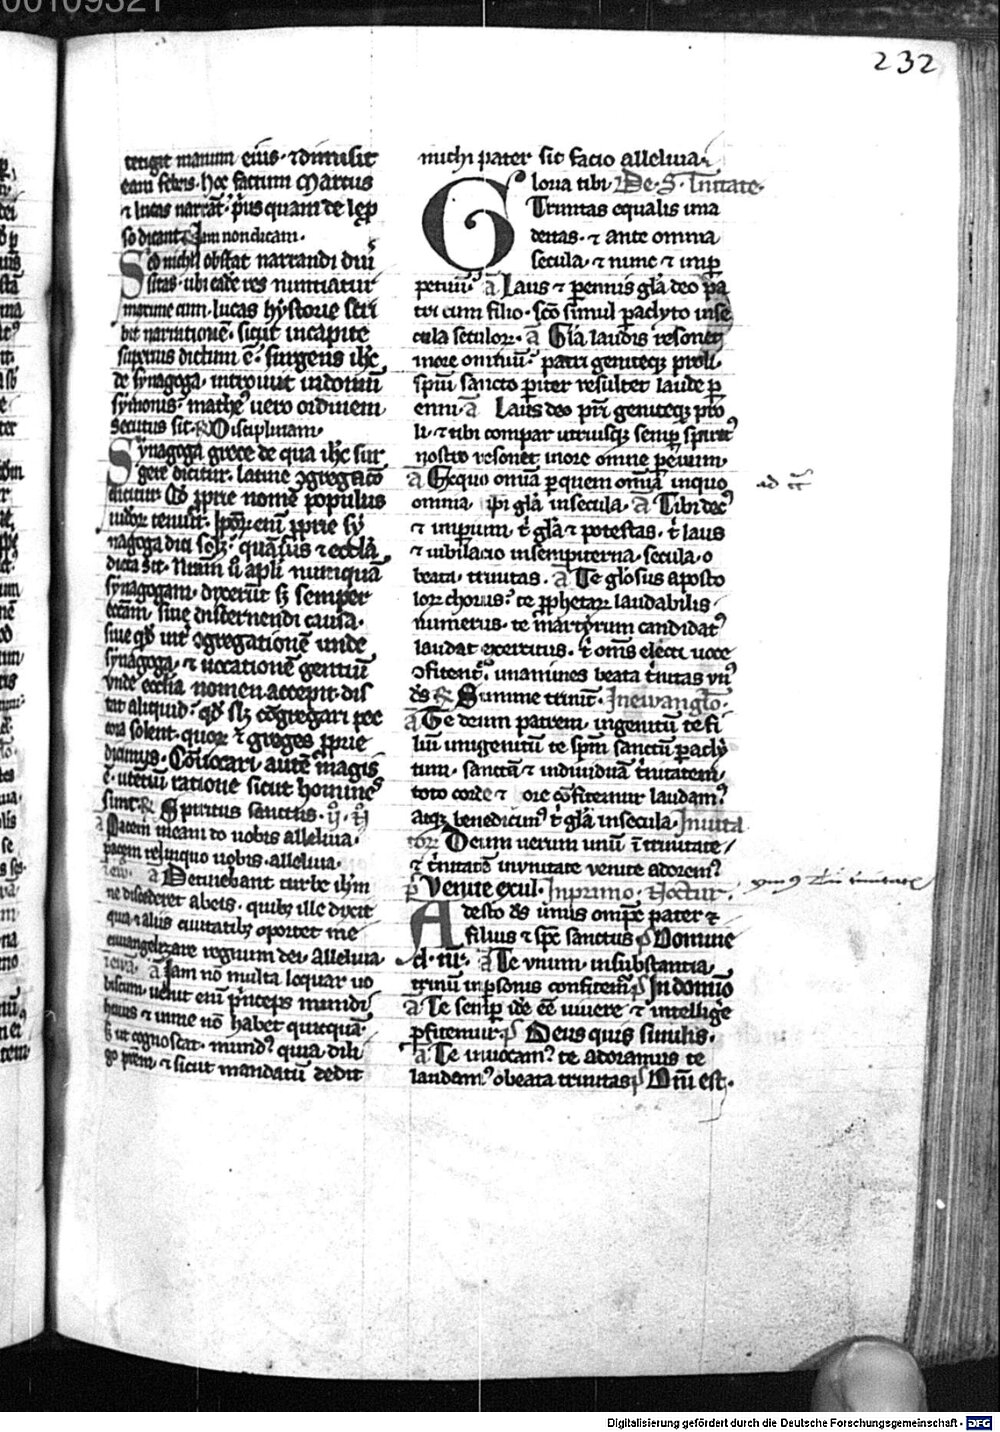 232
tetigit manum eius · ⁊ dimisit
eam febris · hoc factum Marcus
⁊ lucas narrāt · p̄us quam de lep
so dicant Jam non dicam ·
Sed nichil obstat narrandi diu
sitas · ubi eadē res nuntiatur
maxime cum · lucas hystorie scri
bit narrationē · sicut in capite
superius dictum ē · surgens ihc̄
de synagoga · introiuit in domū
symonis · mathe⁹ uero ordinem
secutus sit · ℟ Disciplinam ·
Synagoga grece de qua ihc̄ sur
gere dicitur · latine ꝯgregacō
dicitur · qd̄ ꝓprie nomē populus
iudeoꝝ tenuit · Ipoꝝ enī ꝓprie sy
nagoga dici solꝫ · quāsuis ⁊ eccl̄a
dicta sit · Nam u̇ apl̄i nunquā
synagogam · dixerūt sꝫ semper
eccām · siue discernendi causa ·
siue qd̄ int̄ ꝯgregationē unde
synagoga · ⁊ uocationē gentiū
vnde eccl̄ia nomen accepit · dis
tat aliquid · qd̄ slꝫ cōgregari pec
cora solent · quoꝝ ⁊ greges ꝓprie
dicimus · Cōuocari autē magis
ē · utentiū ratione sicut homineſ
sunt · ℟ Spiritus sanctus ·
a Pacem meam do uobis alleluia ·
pacem relinquo uobis · alleluia ·
a Detinebant turbe ihm̄
ne discederet abeis · quibꝫ ille dixit
quia ⁊ aliis ciuitatibꝫ oportet me
euuangelizare regnum dei · alleluia
ā Jam nō multa loquar uo
biscum · uenit enī p̄nceps mundi
huius ⁊ in me nō habet quicquā ·
s̄ ut cognoscat · mund⁹ quia dili
go p̄rem · ⁊ sicut mandatū dedit
michi pater sic facio alleluia ·
Gloria tibi · De · S · Tinitate ·
Trinitas equalis una
deitas · ⁊ ante omnia
secula · ⁊ nunc ⁊ inꝑ
petuū · ā Laus ⁊ ꝑennis gl̄a deo pa
tri cum filio · sc̄o simul paclyto inse
cula seculoꝝ · ā Gl̄a laudis resonet
in ore omniū · patri genitoqꝫ proli ·
spiū sancto pariter resultet laude ꝑ
enni · ā Laus deo pr̄i genitoqꝫ pro
li · ⁊ tibi compar utriusqꝫ semꝑ spirit⁹
nostro resonet in ore omne ꝑ euum ·
ā Exquo omīa ꝑ quem omīa in quo
omnia · ipī gl̄a in secula · ā Tibi dec⁹
⁊ imperium · t̄ gl̄a ⁊ potestas · t̄ laus
⁊ iubilacio in sempiterna · secula · o
beata · trinitas · ā Te glosus aposto
loꝝ chorus · te ꝓphetaꝝ laudabilis
numerus · te martyrum candidat⁹
laudat exercitus · t̄ om̄s electi uoce
ꝯfitent̄ · unanimes beata t̄nitas vn⁹
ds̄ ℟ Summe trinit · In ewangl̄o ·
ā Te deum patrem · ingenitū te fi
liū unigenitū te spm̄ sanctū paclȳ
tum · sanctā ⁊ indiuiduā t̄nitatem ·
toto corde ⁊ ore cōfitemur laudam⁹
atqꝫ benedicim⁹ t̄ gl̄a in secula · Inuita
toꝝ Deum uerum unū ī trinitate
⁊ t̄nitatē in vnitate venite adorem⁹
p̄ Venite exul · In primo · Noctur ·
Adesto ds̄ unus omp̄e pater ⁊
filius ⁊ spc̄ sanctus p̄ Domine
d · nr̄ · ā Te vnum · in substantia ·
trinū in psonis confitem̄ p̄ In domīo
ā Te semꝑ idē eē uiuere ⁊ intellige
ꝓfitemur p̄ Deus quis similis ·
ā Te inuocam⁹ te adoramus te
laudam⁹ o beata trinitas p̄ Dn̄i est ·
Digitalisierung gefördert durch die Deutsche Forschungsgemeinschaft · DFG